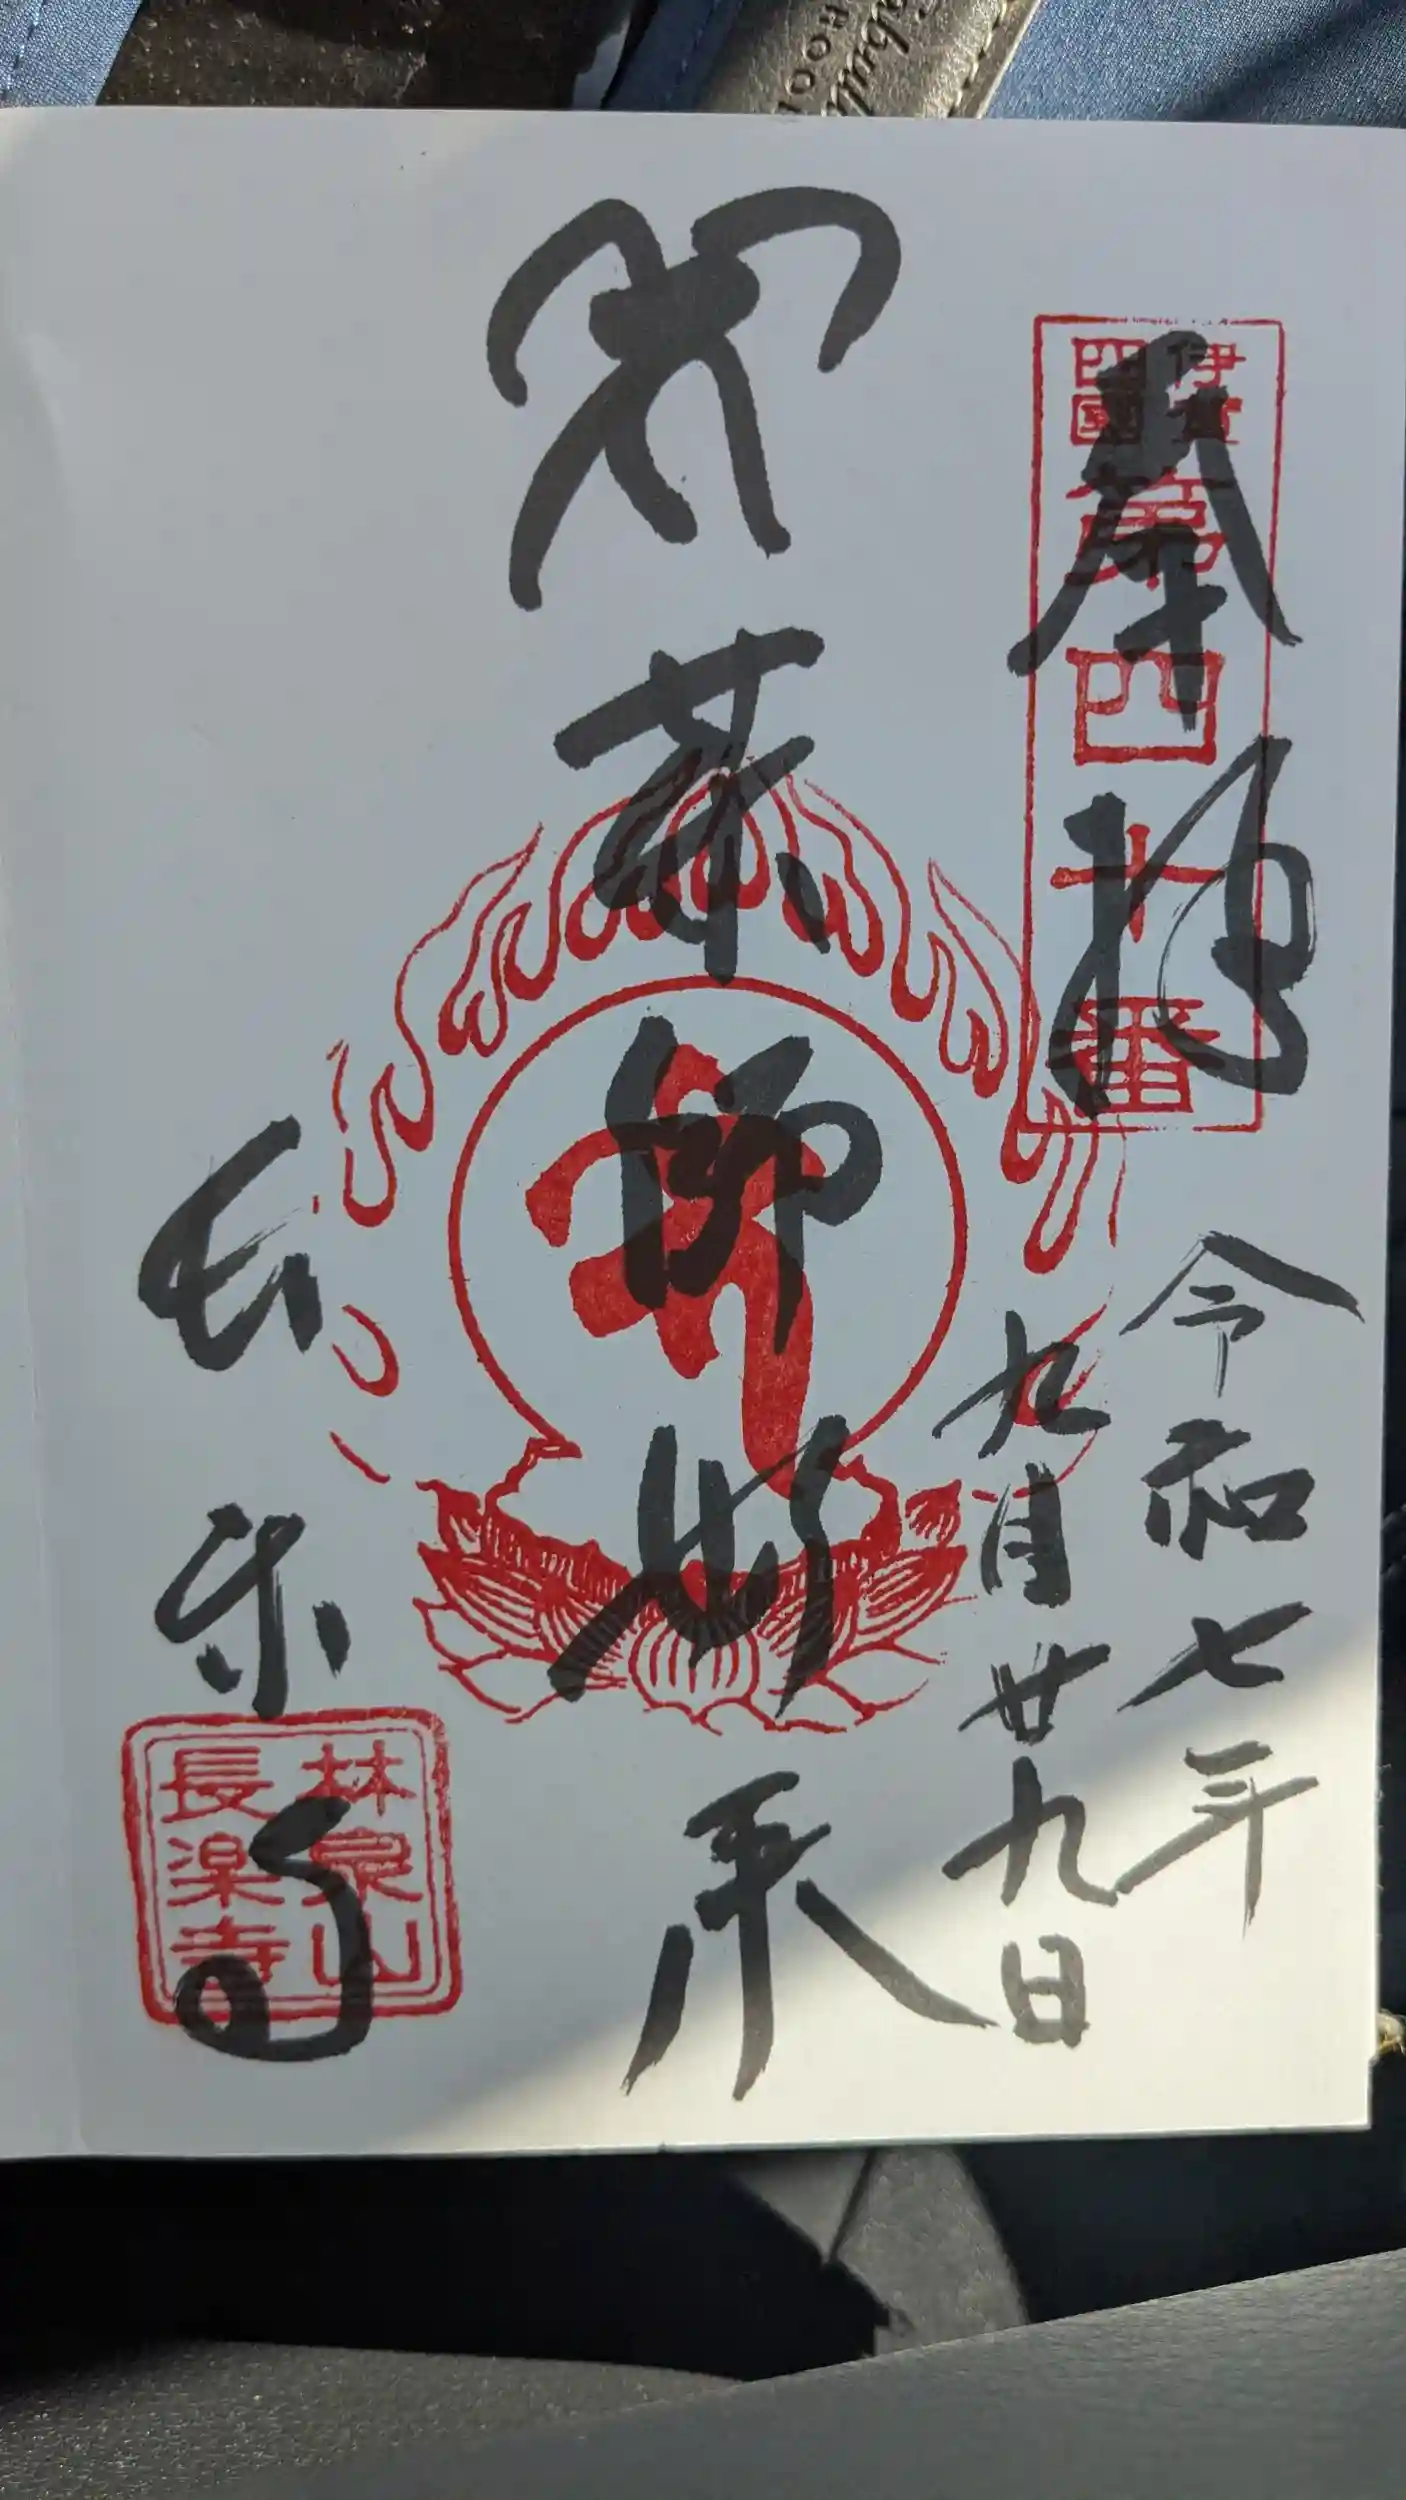 奉拝
伊賀
四國
第四十番
令和七年
九月廿九日
薬師如来
長楽寺
林泉山
長楽寺